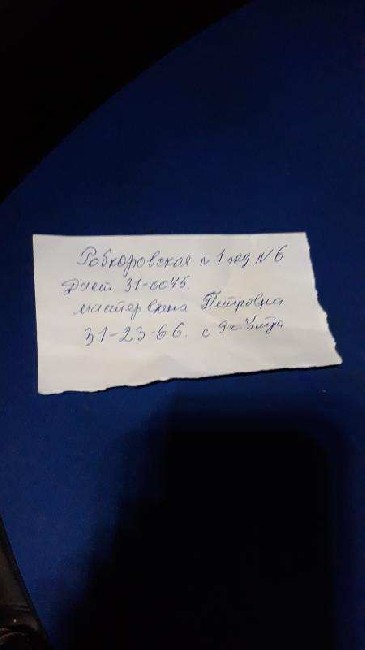 Рабкоровская 1 под N 6
Дисп 31-60-45
мастер Елена Петровна
31-23-66. с 9ч утра